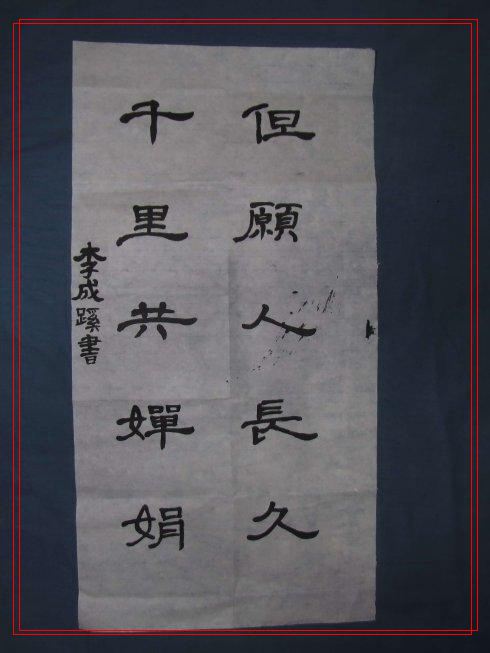 但願人長久
千里共嬋娟
李成蹊書